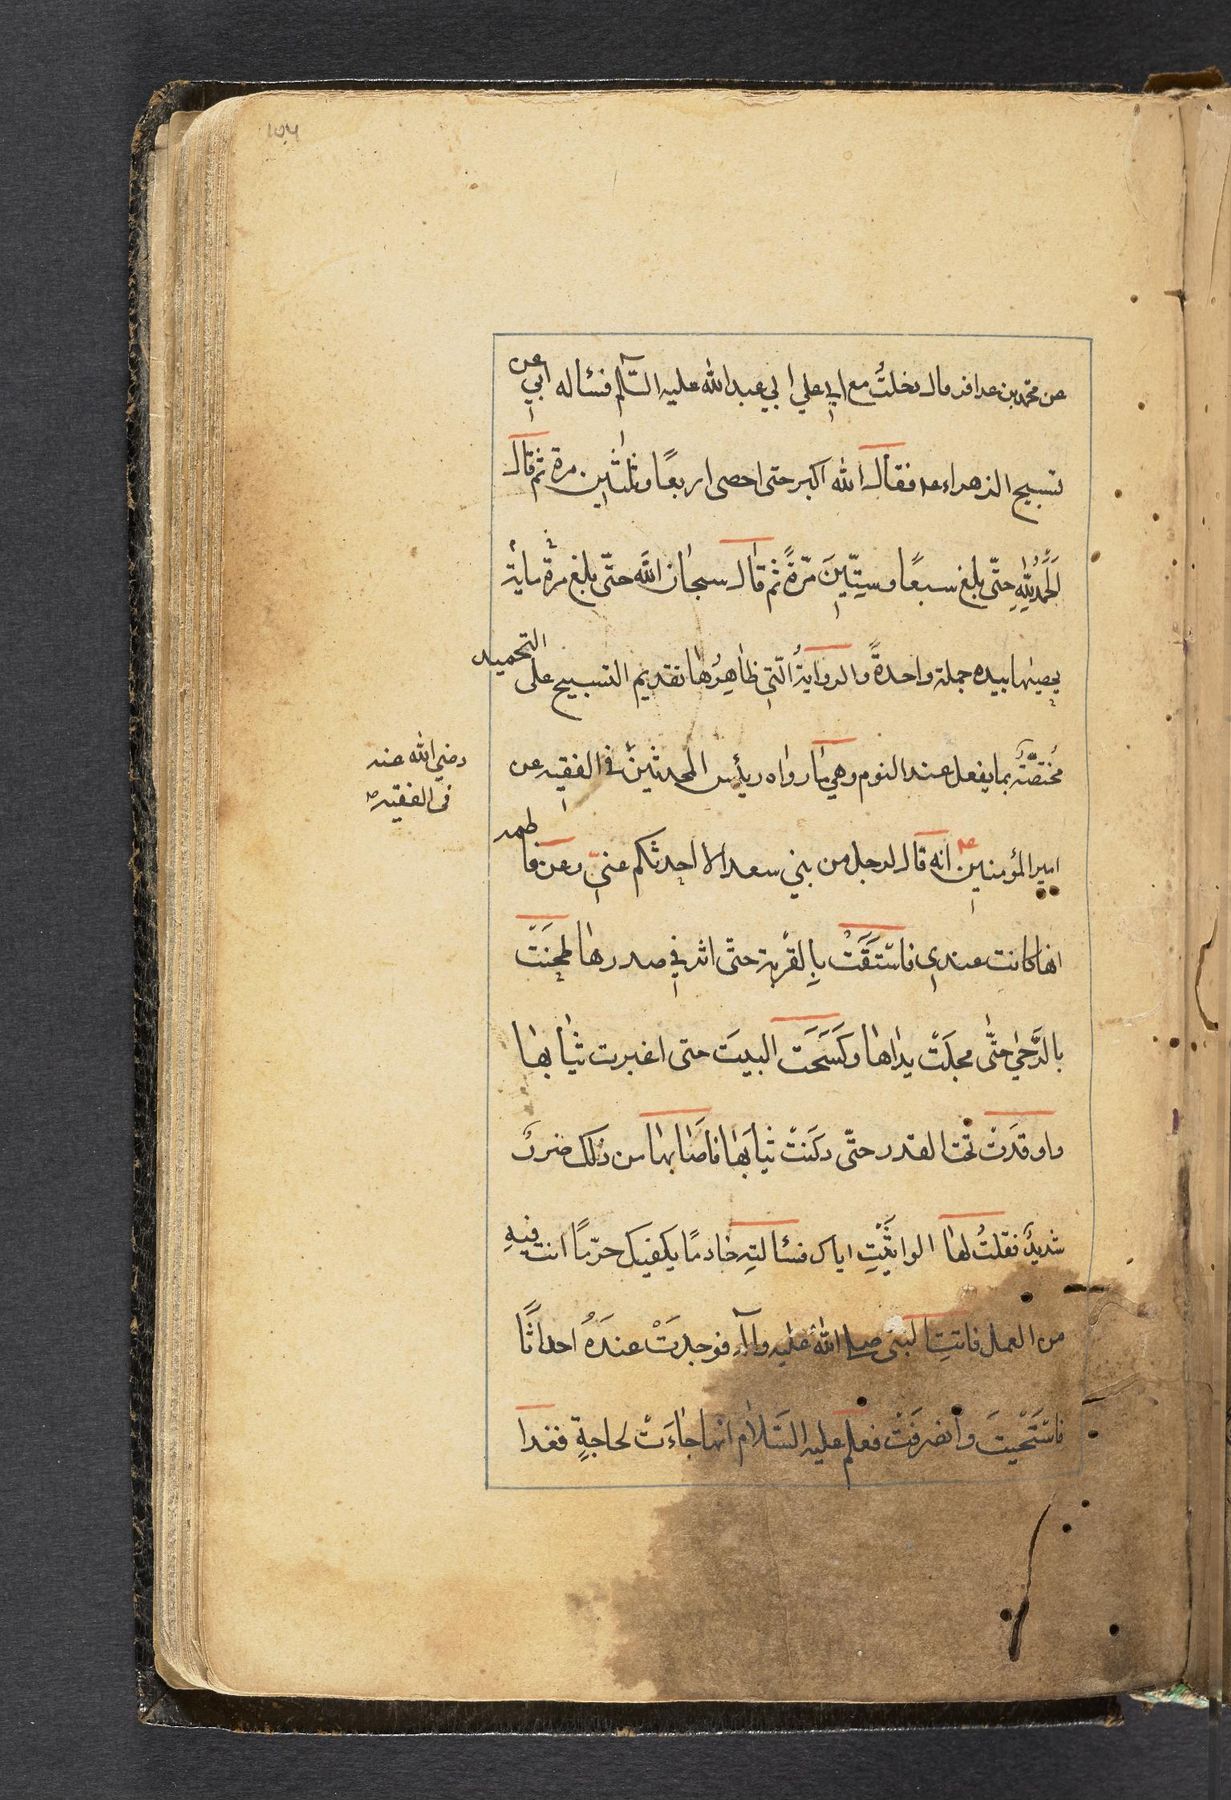 عن محمد بن عذافر قال دخلتُ مع ابي علي ابي عبد الله عليه السّلم فسئاله ابي عن
تسبيح الزهراء ع فقال الله اكبر حتى احصى اربعًا وثلثين مرة ثم قال
الحَمدُ لِلّٰهِ حتّى بلغ سبعًا وسِتّينَ مرّةً ثم قال سبحان اللّه حتّى بلغ مرة ماية
يحصيها بيده جملة واحدةً والروايةُ الّتي ظاهِرُها تقديم التسبيح على التحميد
مُختصّةٌ بما يفعل عند النوم وهي ما رواه ريئس المحدثين في الفقيه عن
رضي الله عنه
في الفقيه صح
امير المؤمنين ع انه قال لرجل من بني سعد الا احدثكم عني وعن فاطمه
انها كانت عندي فاسْتَقَتْ بِالقربة حتّى اثر في صدرها وطحنَتْ
بالرَّحٰي حتّٰى مجلَتْ يداها وكَسَحَت البيتَ حتى اغبرت ثيابها
واوقدَتْ تحت القدر حتّى دكنَتْ ثيابَها فاصَابها من ذٰلك ضررٌ
شديدٌ فقلتُ لها لو اتَيْتِ اباك فسئالتِهِ خادمًا يكفيك حرّ ما انت فيهِ
من العمل فاتتِ النبى صلى اللهُ عليه وآله فوجدَتْ عندَهُ احداثًا
فاسْتَحْيَتَ وانصرفَتْ فعلم عليه السَّلام انّها جاءَتْ لحاجةٍ فغدا